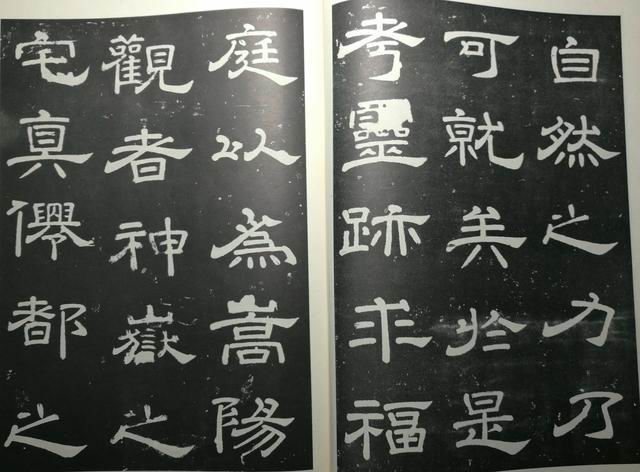 自然之力乃
可就矣於是
考靈跡求福
庭以為嵩陽
觀者神嶽之
宅真僊都之